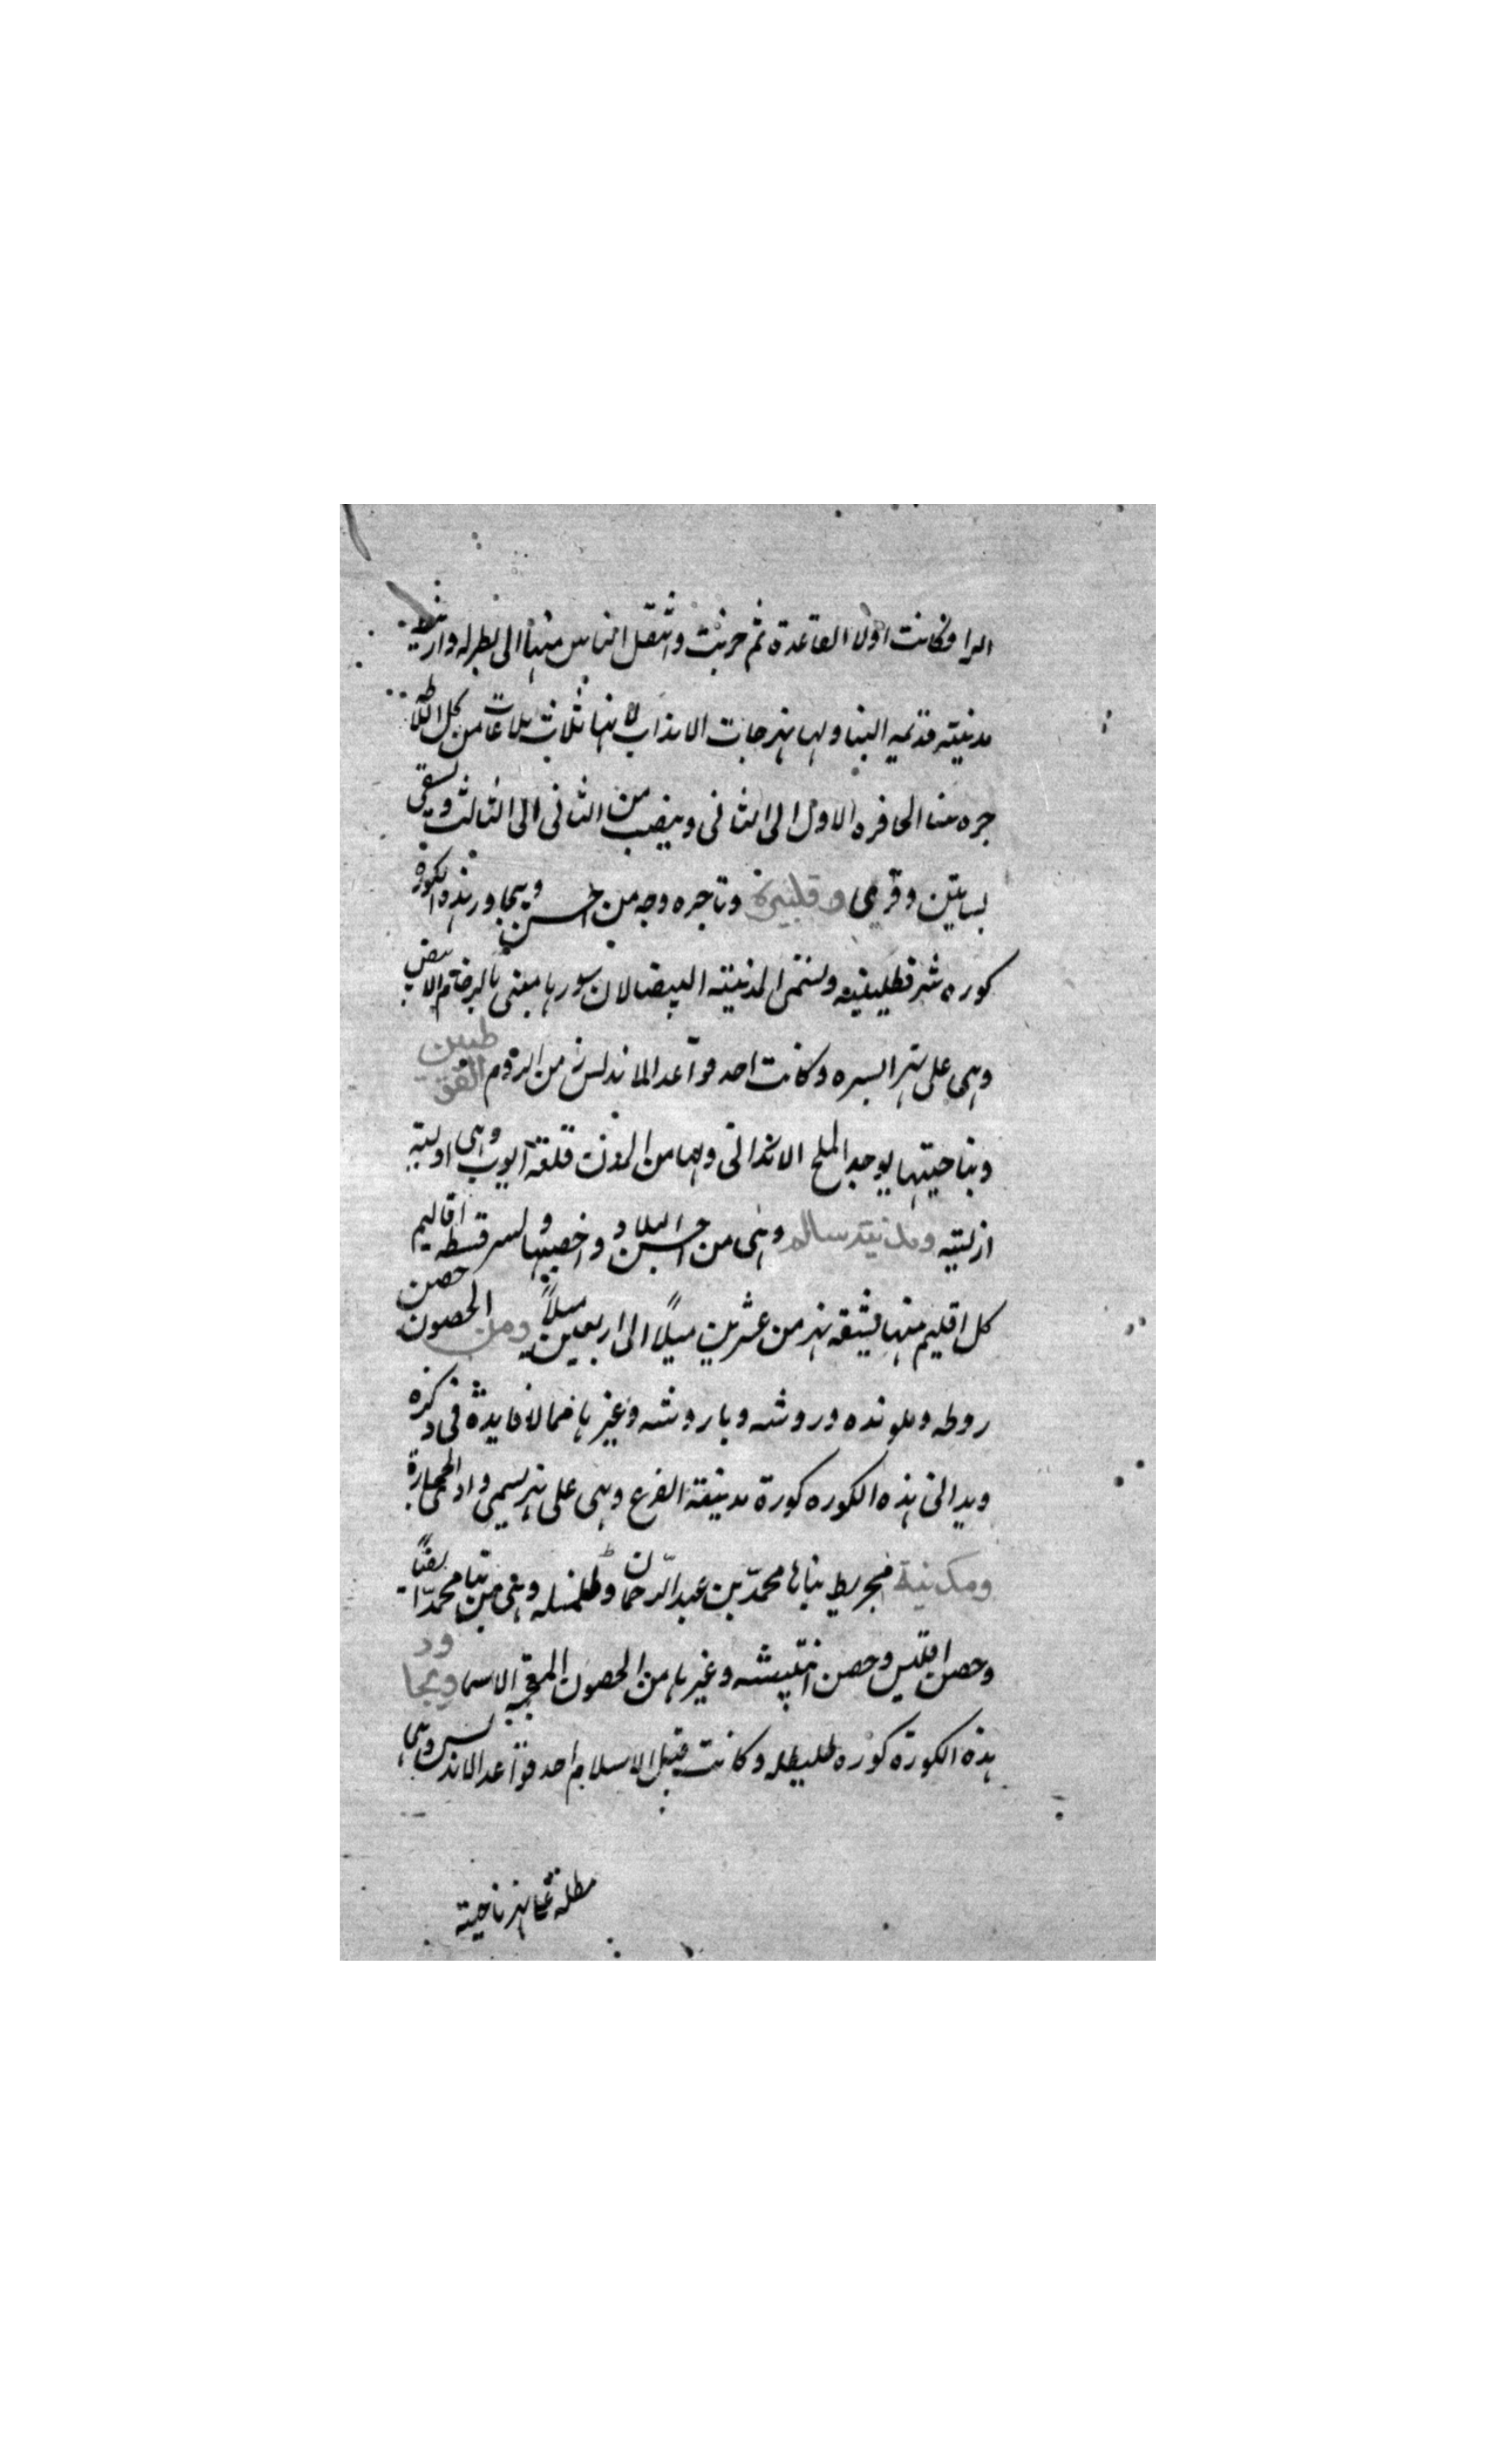 الرا وكانت اولا القاعدة ثم خربت وانتقل الناس منها الى بطرله وارنيط
مدينته قديمه البنا ولها نهرجات الانداب لانها ثلاث بلاعات من كل
جره منا الحافره الاول الى الثانى وينصب من الثانى الى الثالث ويسقى
بساتين وقرى وقلنيرة وتاجره وجه من احسن ويجاور هذه الكورة
كوره شرقطليقيه وتسمى المدينته البيضا لان سورها مبنى بالرخام الابيض
وهى على نهر ابسره وكانت احد قواعد الاندلس من الروم القوطيين
وبناحيتها يوجد الملح الاندرانى ولها من المدن قلعة ايوب وهى اوليه
ازليته ومدينته سالم وهى من احسن البلاد واخصبها ولسرقسطه اقاليم
كل اقليم منها يشقه نهر من عشرين ميلاً الى اربعين ميلاً ومن الحصون حصن
روطه وملونده وروشه وباروشه وغيرها مما لا فايدة فى ذكره
ويدانى هذه الكوره كورة مدينة الفرع وهى على نهر يسمى واد الحجارة
ومدينة مجريط بناها محمد بن عبد الرحمان وطلمنله وهى من بنا محمد ايضاً
وحصن اقليس وحصن انتيشه وغيرها من الحصون الاسما ويجاور
هذه الكورة كوره طليطله وكانت قبل الاسلام احد قواعد الاندلس وهى
مطلة على نهر تاجيته